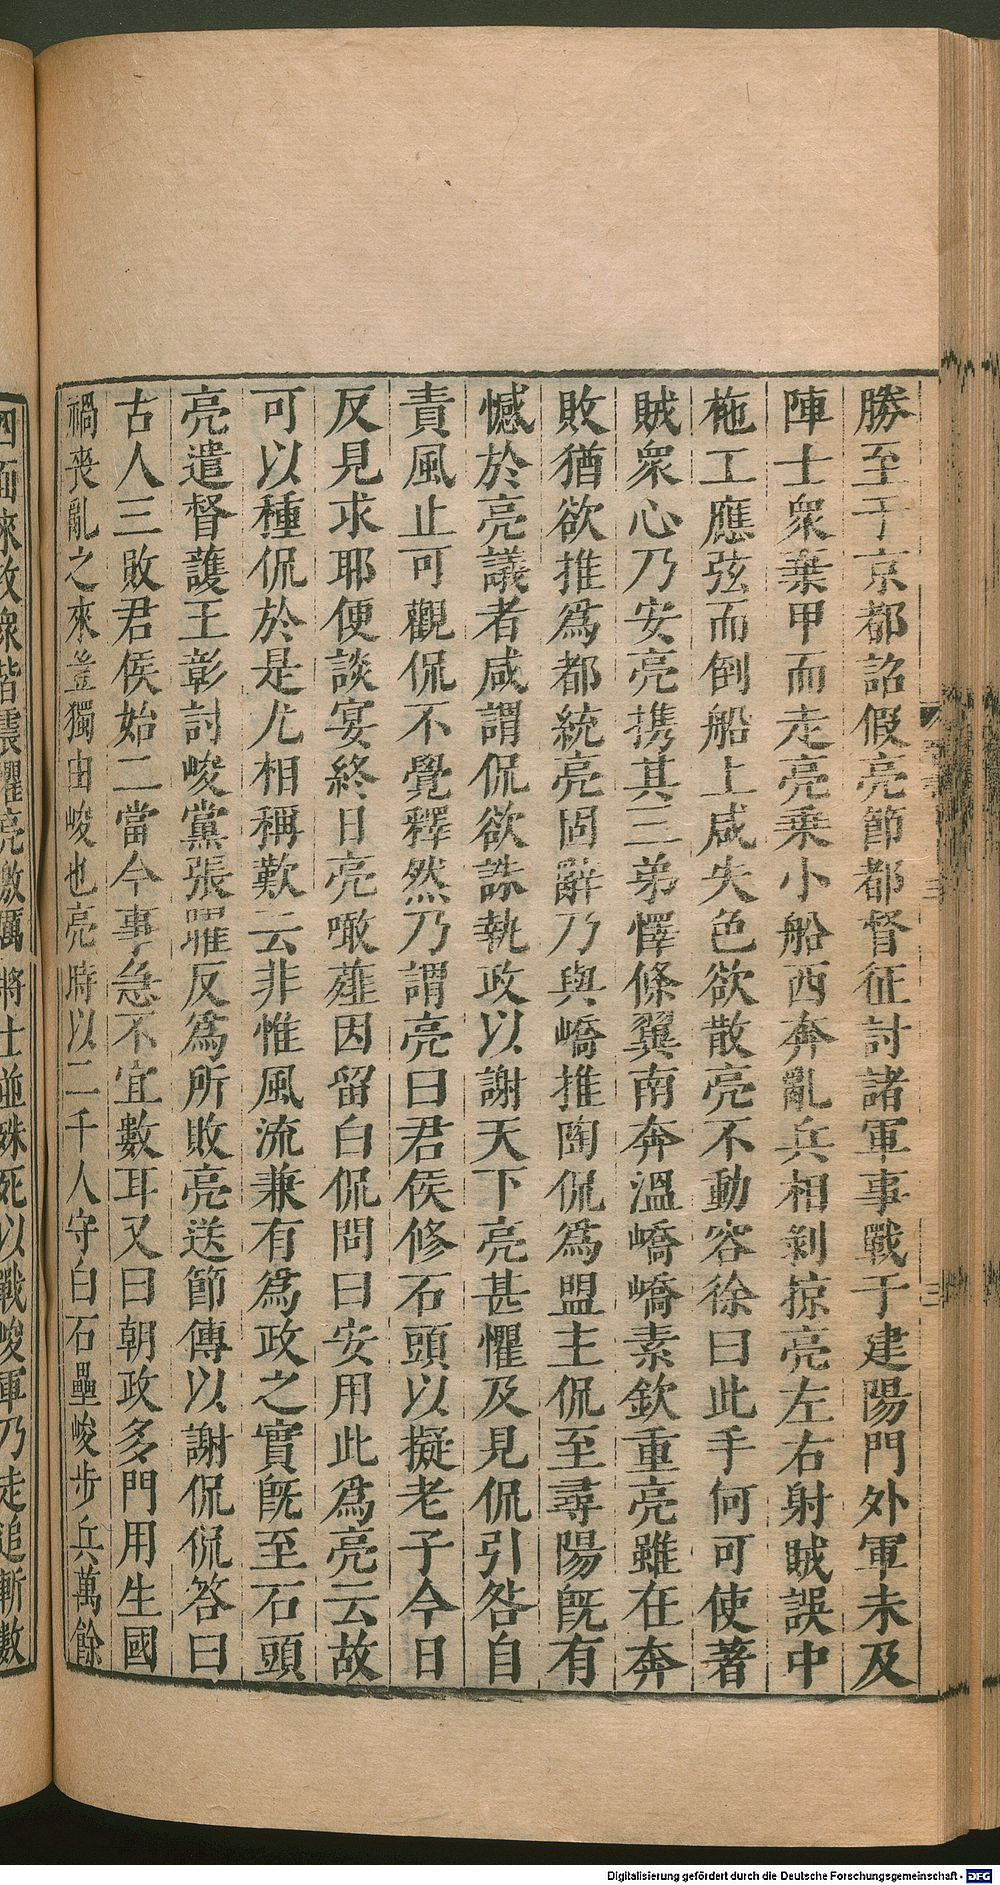 勝至于京都詔假亮節都督征討諸軍事戰于建陽門外軍未及
陣士衆棄甲而走亮乗小船西奔亂兵相剥掠亮左右射賊誤中
柂工應弦而倒船上咸失色欲散亮不動容徐曰此手何可使著
賊衆心乃安亮携其三弟懌條翼南奔溫嶠嶠素欽重亮雖在奔
敗猶欲推爲都統亮固辭乃與嶠推陶侃爲盟主侃至尋陽旣有
憾於亮議者咸謂侃欲誅執政以謝天下亮甚懼及見侃引咎自
責風止可觀侃不覺釋然乃謂亮曰君侯修石頭以擬老子今日
反見求耶便談宴終日亮噉薤因留白侃問曰安用此爲亮云故
可以種侃於是尤相稱歎云非惟風流兼有爲政之實旣至石頭
亮遣督護王彰討峻黨張曜反爲所敗亮送節傳以謝侃侃答曰
古人三敗君侯始二當今事急不宜數耳又曰朝政多門用生國
禍喪亂之來豈獨由峻也亮時以二千人守白石壘峻步兵萬餘
四面來攻衆皆震懼亮激厲將士並殊死以戰峻軍乃走追斬數
Digitalisierung gefördert durch die Deutsche Forschungsgemeinschaft - DFG